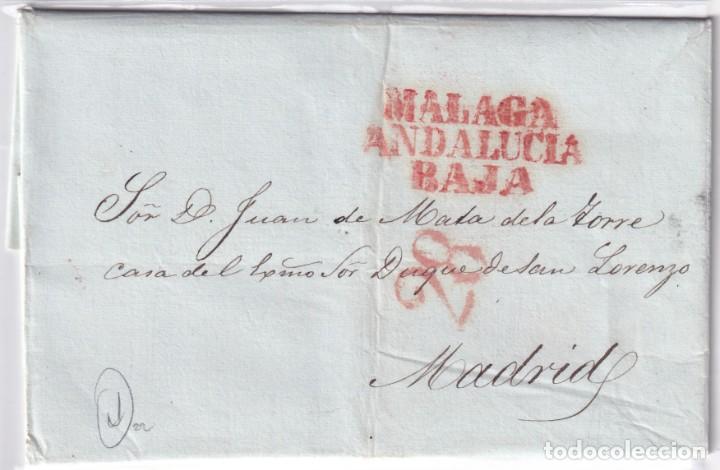 MALAGA
ANDALUCIA
BAJA
Sõr D. Juan de Mata de la Torre
casa del Exmo Sõr Duque de san Lorenzo
28
Madrid
todocoleccion